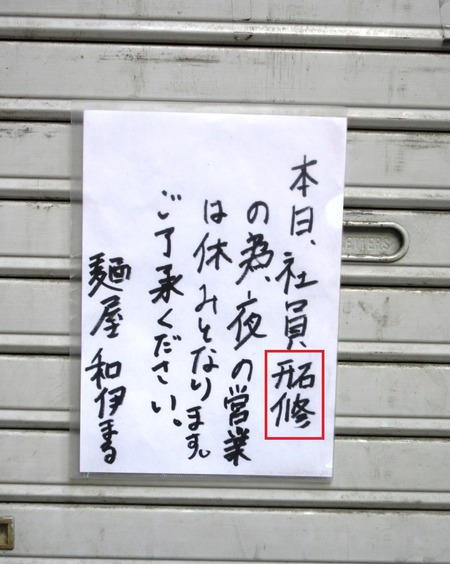 本日、社員研修
の為、夜の営業
は休みとなります。
ご了承ください。
麺屋 和伊まる
LETTERS